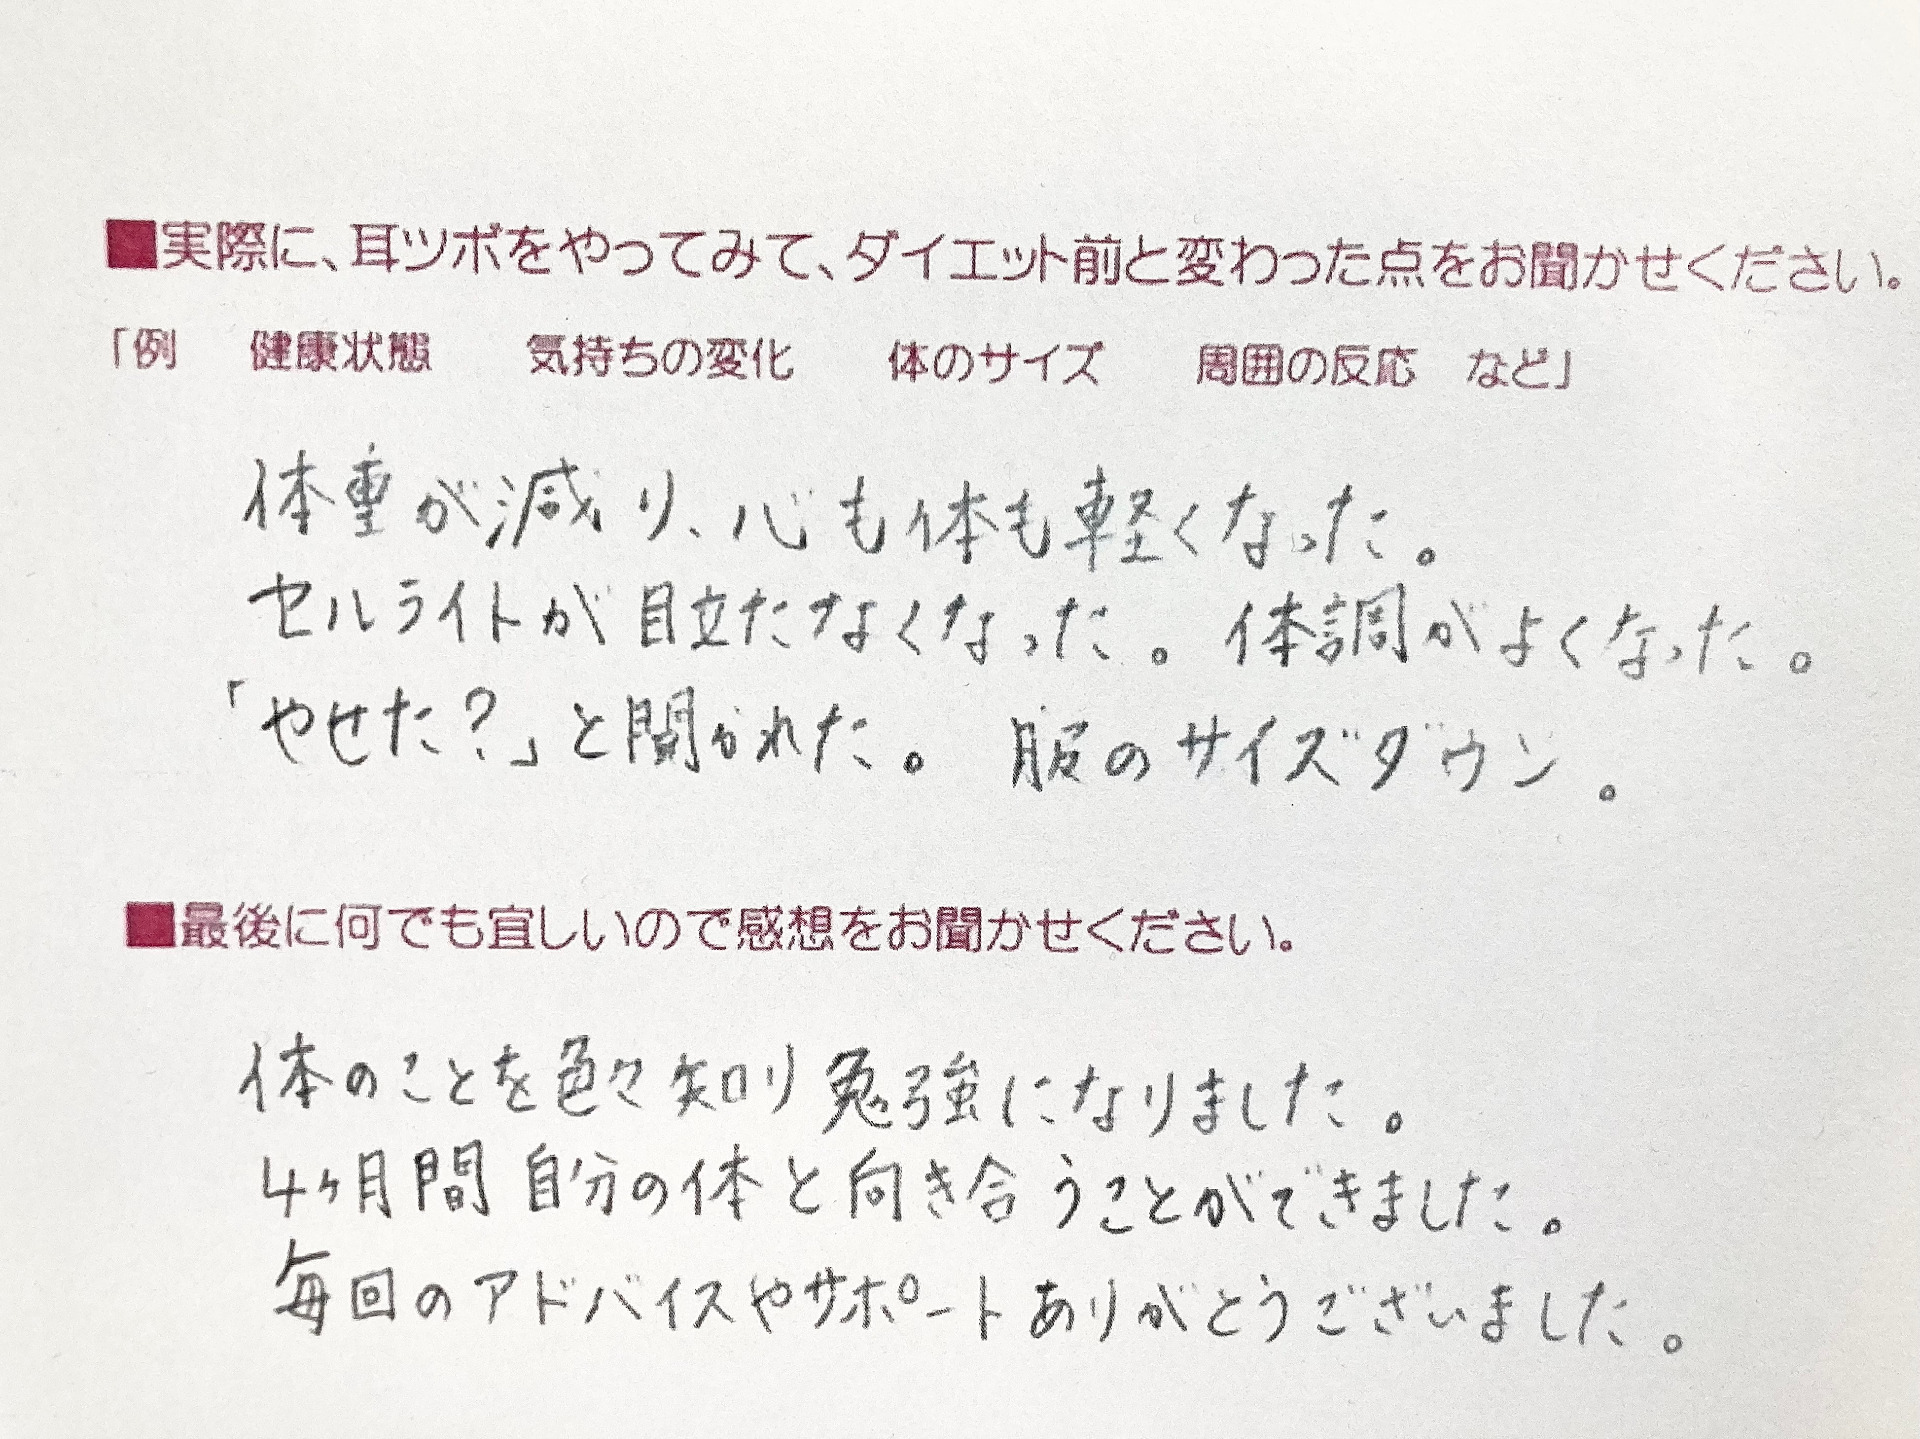 ■実際に、耳ツボをやってみて、ダイエット前と変わった点をお聞かせください。
「例　健康状態　気持ちの変化　体のサイズ　周囲の反応　など」
体重が減り、心も体も軽くなった。
セルライトが目立たなくなった。体調がよくなった。
「やせた?」と聞かれた。服のサイズダウン。
■最後に何でも宜しいので感想をお聞かせください。
体のことを色々知り勉強になりました。
4ヶ月間自分の体と向き合うことができました。
毎回のアドバイスやサポートありがとうございました。